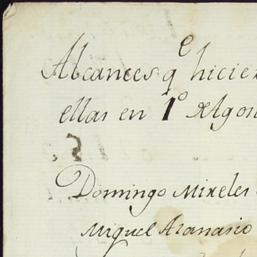 Alcances q.e hicier
ellas en 1.º de Agos
Domingo Mireles
Miguel Atanasio